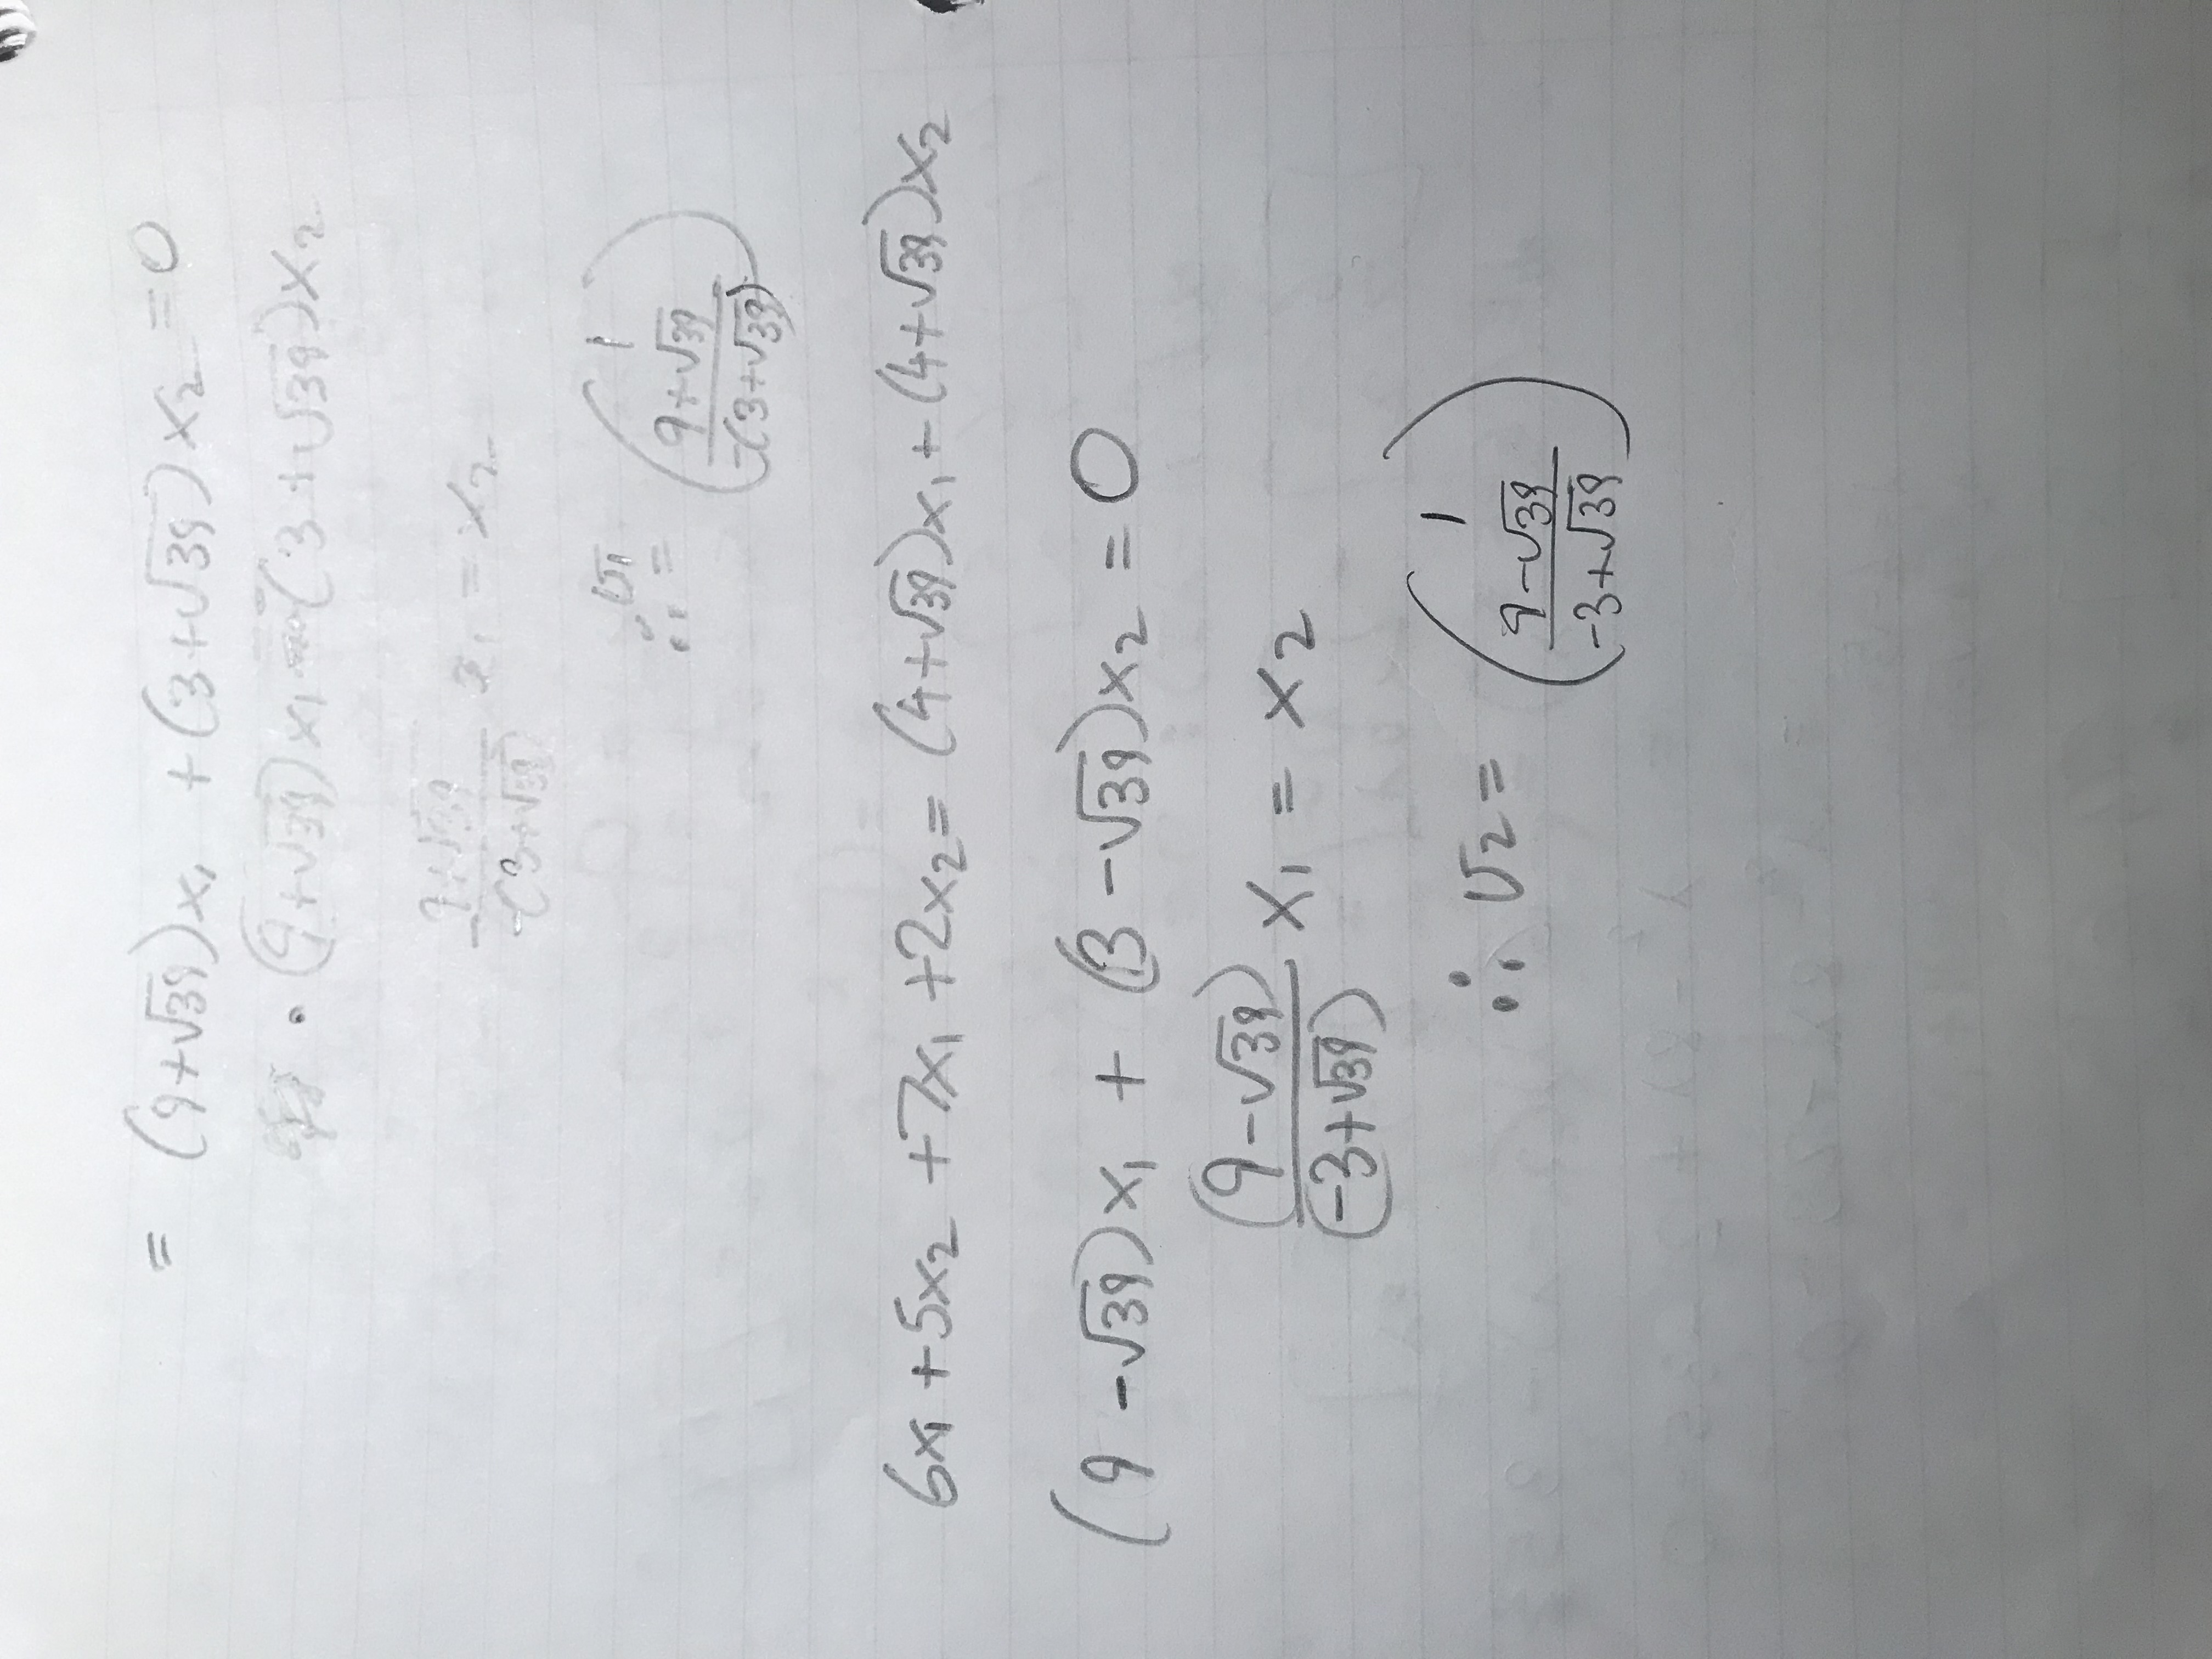 = (9+√39)x₁ + (3+√39)x₂ = 0
• (9+√39)x₁ = -(3+√39)x₂
(9+√39)/(-(3+√39)) x₁ = x₂
∴ v₁ = (1, (9+√39)/(-(3+√39)))
6x₁ + 5x₂ + 7x₁ + 2x₂ = (4+√39)x₁ + (4+√39)x₂
(9-√39)x₁ + (3-√39)x₂ = 0
(9-√39)/(-3+√39) x₁ = x₂
∴ v₂ = (1, (9-√39)/(-3+√39))